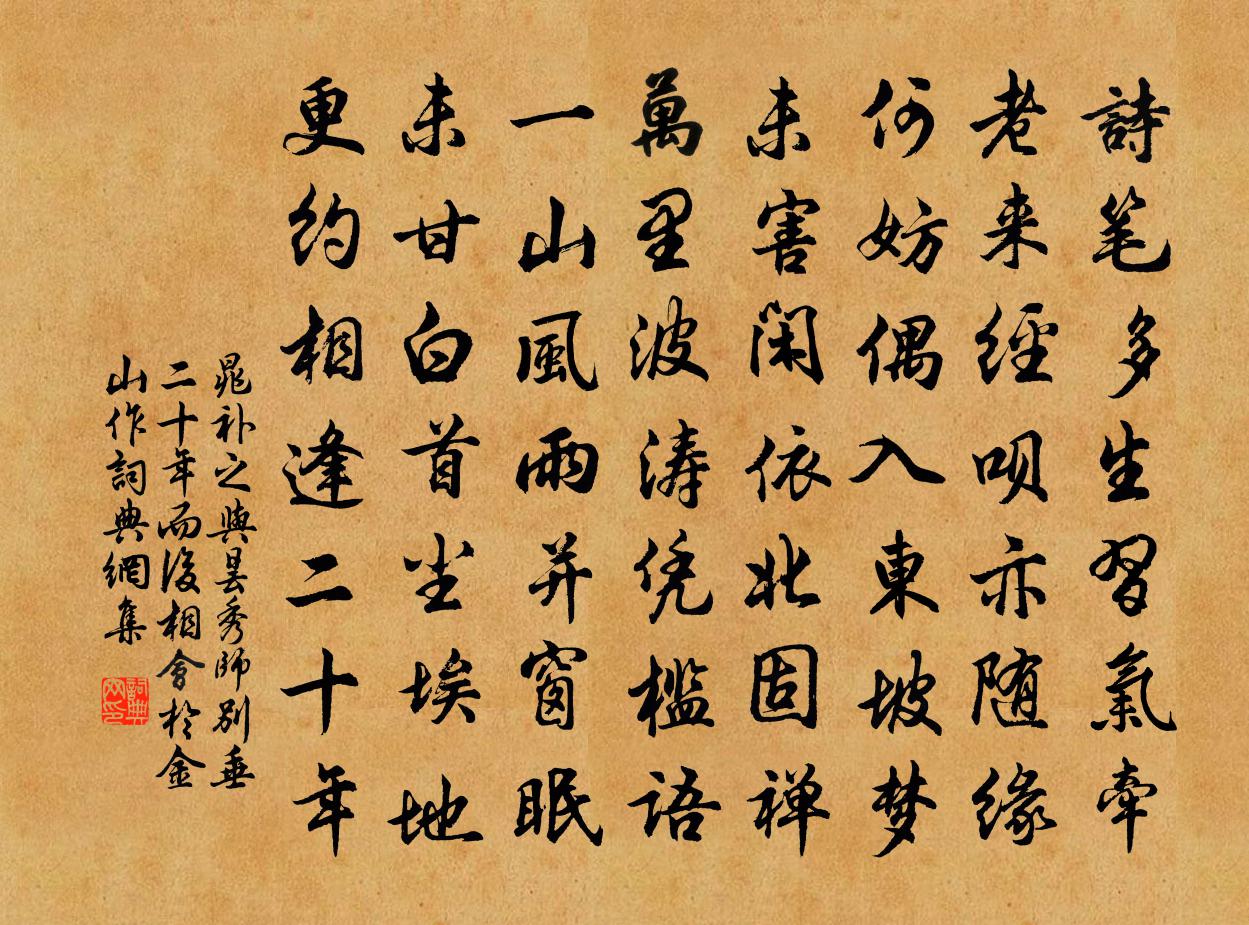 詩笔多生習氣牽
老来經呗亦随緣
何妨偶入東坡梦
未害闲依北固禅
萬里波涛凭槛語
一山風雨并窗眠
未甘白首尘埃地
更约相逢二十年
晁补之與昙秀師别垂
二十年而後相會於金
山作詞典網集